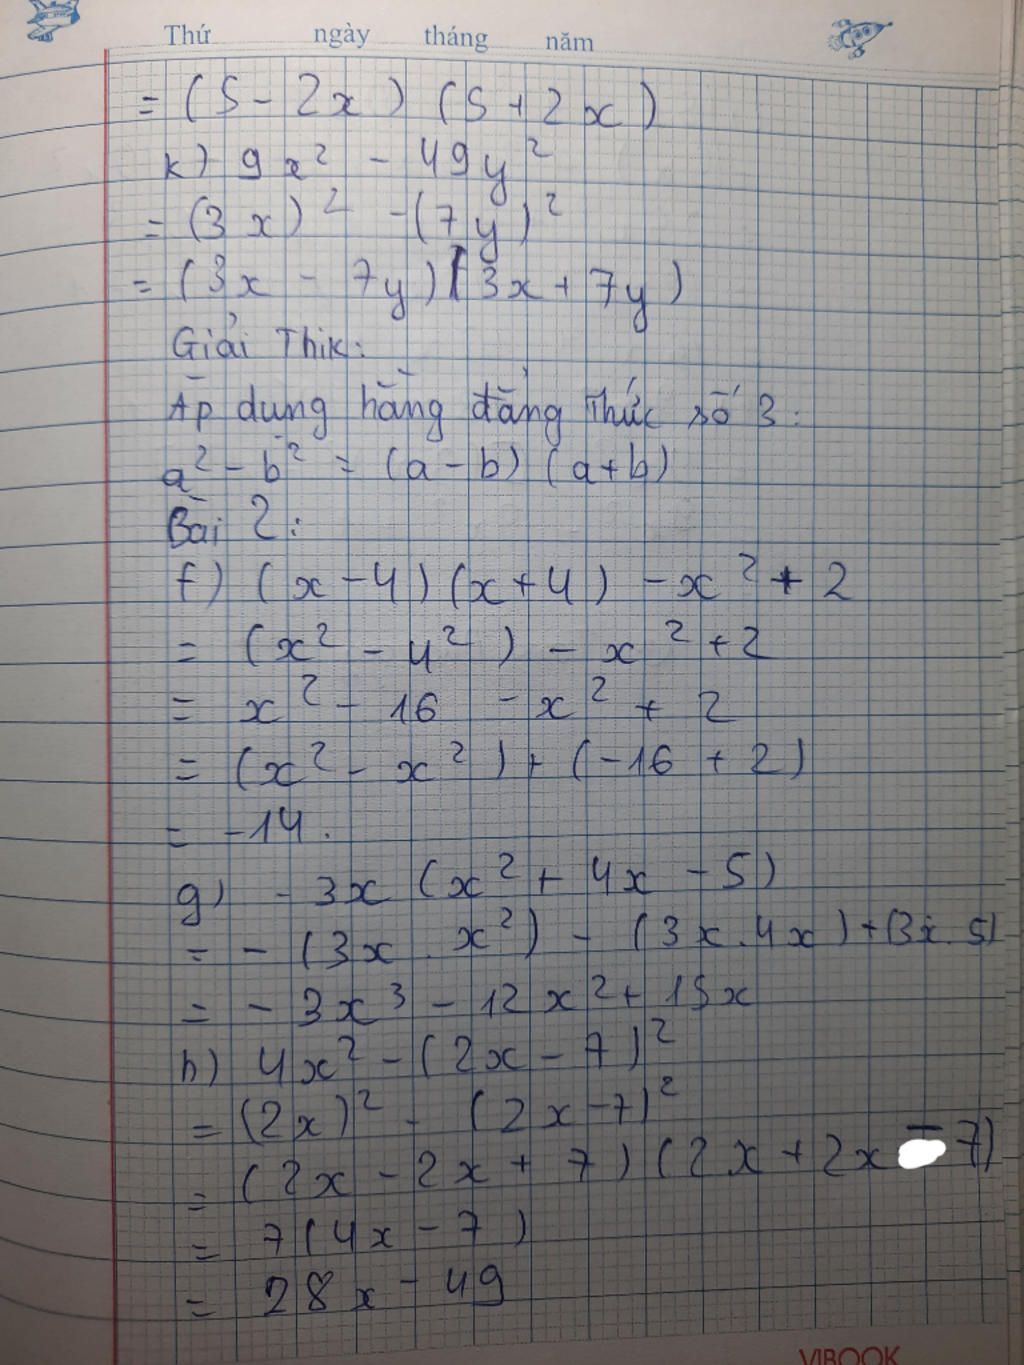 Thứ ngày tháng năm
= (5 - 2x) (5 + 2x)
k) 9x² - 49y²
= (3x)² - (7y)²
= (3x - 7y)(3x + 7y)
Giải Thik:
Áp dung hằng đẳng Thức số 3:
a² - b² = (a - b) (a + b)
Bài 2:
f) (x - 4) (x + 4) - x² + 2
= (x² - 4²) - x² + 2
= x² - 16 - x² + 2
= (x² - x²) + (-16 + 2)
= -14.
g) - 3x (x² + 4x - 5)
= - (3x . x²) - (3x . 4x) + (3x . 5)
= - 3x³ - 12x² + 15x
h) 4x² - (2x - 7)²
= (2x)² - (2x - 7)²
= (2x - 2x + 7) (2x + 2x - 7)
= 7(4x - 7)
= 28x - 49
VIBOOK